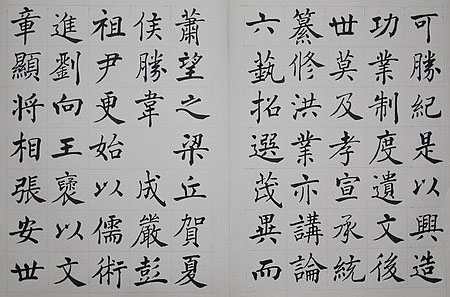 可勝紀是以興造
功業制度遺文後
世莫及孝宣承統
纂修洪業亦講論
六藝招選茂異而
蕭望之梁丘賀夏
侯勝韋 成嚴彭
祖尹更始以儒術
進劉向王褒以文
章顯將相張安世